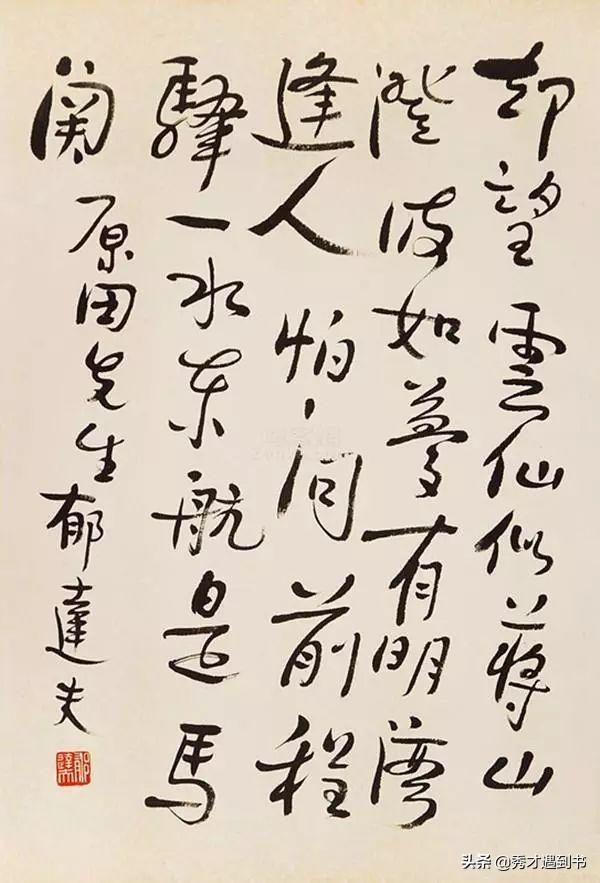 却望雲仙似蔣山
澄波如夢有明灣
逢人怕問前程
驛一水東航是馬
関 原田先生 郁達夫
头条 @秀才遇到书